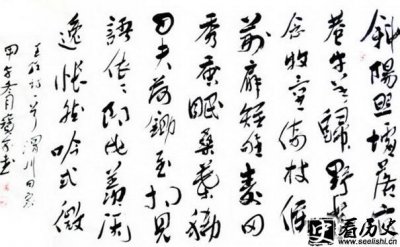 斜陽照墟落窮
巷牛羊歸野老
念牧童倚杖候
荊扉雉雊麥苗
秀蠶眠桑葉稀
田夫荷鋤至相見
語依依即此羨閒
逸悵然吟式微
王維詩一首渭川田家
甲午春月書
看历史
www.seelishi.cn